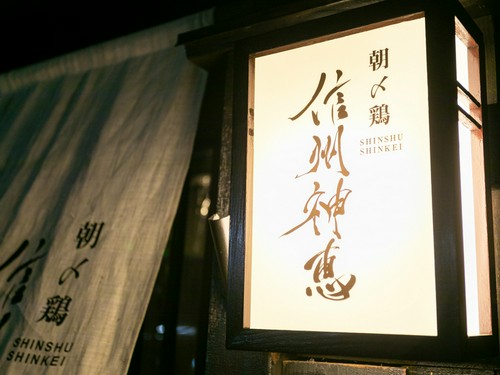 朝〆鶏
信州神恵
SHINSHU
SHINKEI
朝〆鶏
信
SHINSHU
SHINKEI